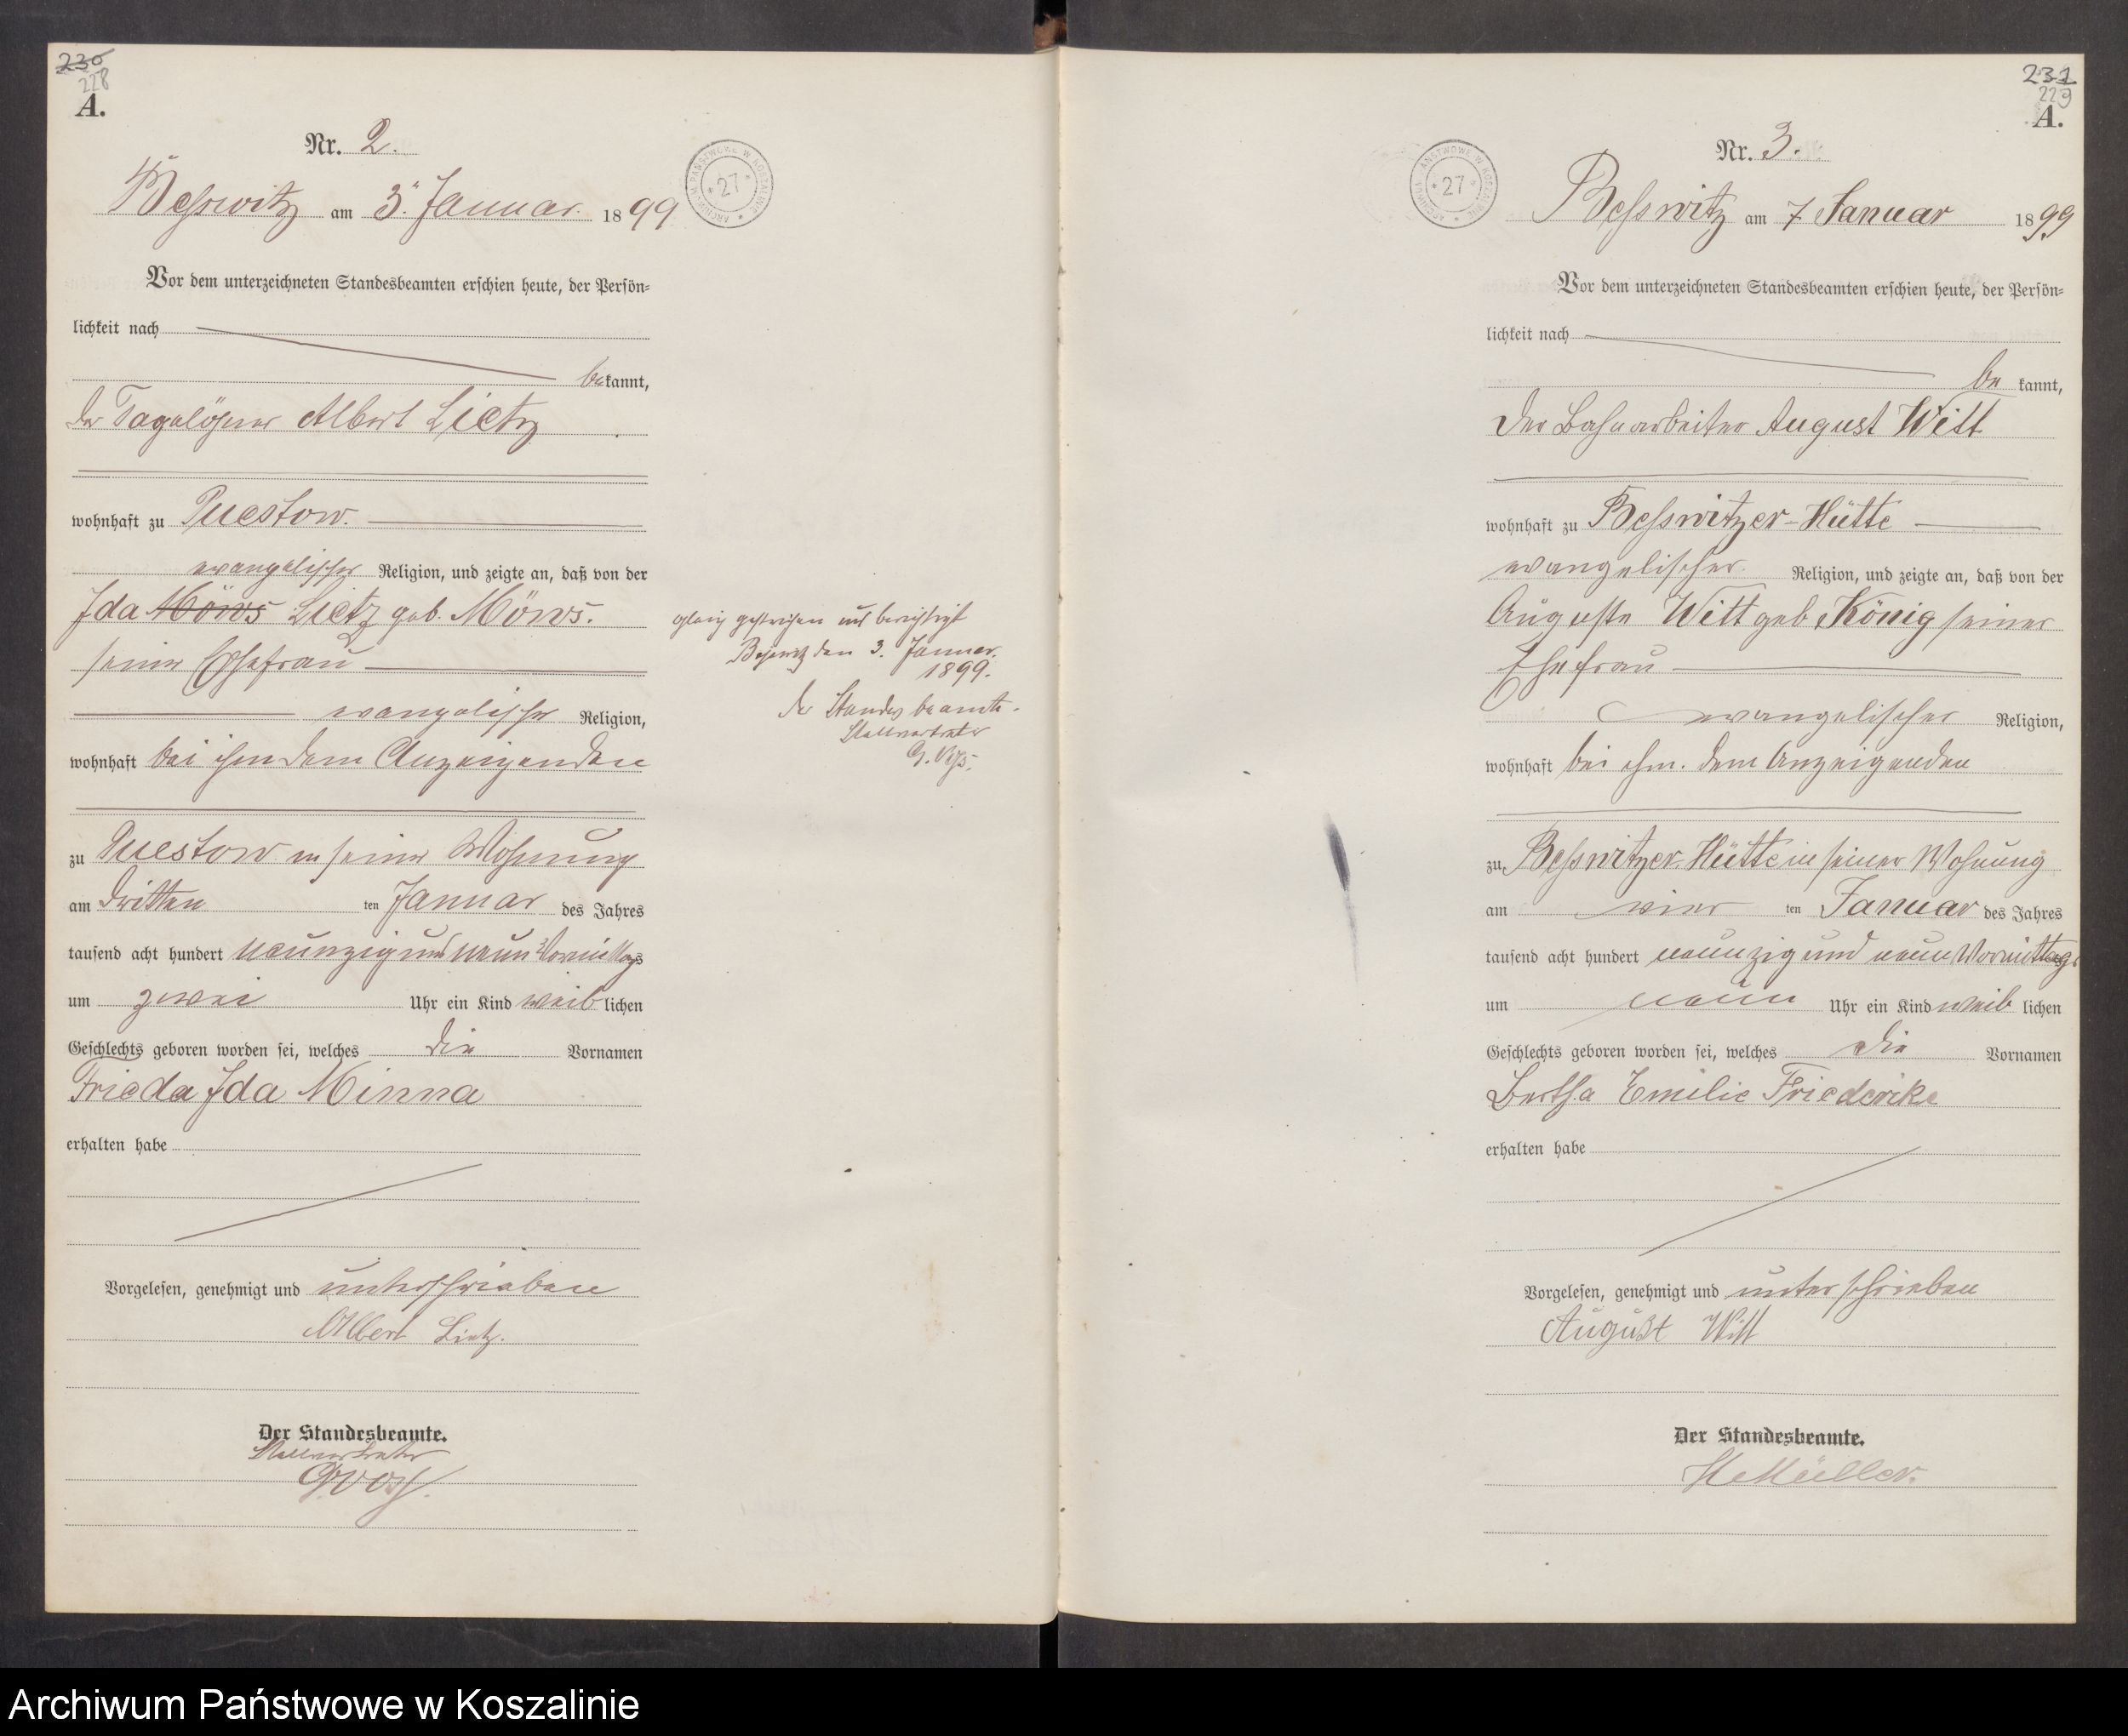 230
228
A.
Nr. 2.
Besswitz am 3. Januar. 1899
Vor dem unterzeichneten Standesbeamten erschien heute, der Persön=
lichkeit nach
bekannt,
der Tagelöhner Albert Lietz
wohnhaft zu Puestow.
evangelischer Religion, und zeigte an, daß von der
Ida Möws Lietz geb. Möws.
seiner Ehefrau
evangelischer Religion,
wohnhaft bei ihm dem Anzeigenden
zu Puestow in seiner Wohnung
am dritten ten Januar des Jahres
tausend acht hundert neunzig und neun Vormittags
um zwei Uhr ein Kind weiblichen
Geschlechts geboren worden sei, welches die Vornamen
Frieda Ida Minna
erhalten habe
Vorgelesen, genehmigt und unterschrieben
Albert Lietz.
Der Standesbeamte.
Stellvertreter
G Voss.
ARCHIWUM PAŃSTWOWE W KOSZALINIE * 27 *
gestrichen und berichtigt
Besswitz den 3. Januar.
1899.
Der Standesbeamte.
Stellvertreter
G. Voss.
231
229
A.
Nr. 3.
ARCHIWUM PAŃSTWOWE W KOSZALINIE * 27 *
Besswitz am 7. Januar 1899
Vor dem unterzeichneten Standesbeamten erschien heute, der Persön=
lichkeit nach
be kannt,
der Bahnarbeiter August Witt
wohnhaft zu Besswitzer-Hütte
evangelischer Religion, und zeigte an, daß von der
Auguste Witt geb. König seiner
Ehefrau
evangelischer Religion,
wohnhaft bei ihm. dem Anzeigenden
zu Besswitzer-Hütte in seiner Wohnung
am vier ten Januar des Jahres
tausend acht hundert neunzig und neun Vormittags
um neun Uhr ein Kind weib lichen
Geschlechts geboren worden sei, welches die Vornamen
Bertha Emilie Friederike
erhalten habe
Vorgelesen, genehmigt und unterschrieben
August Witt
Der Standesbeamte.
Müller.
Archiwum Państwowe w Koszalinie